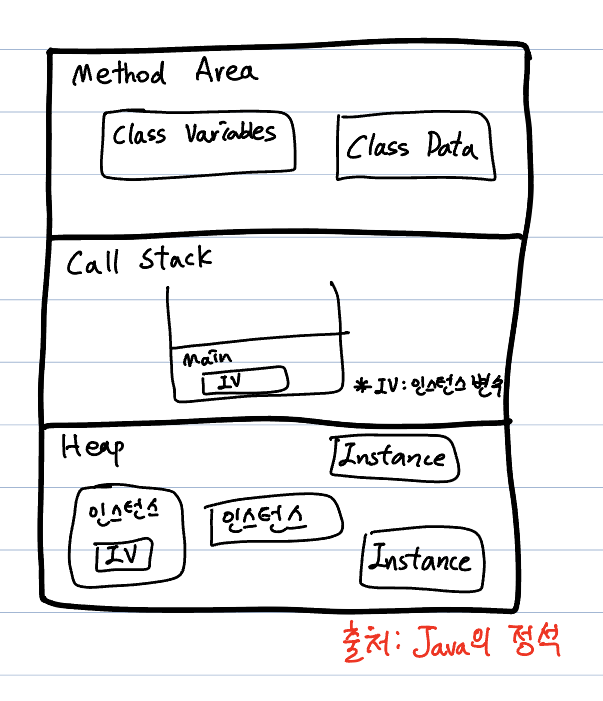 Method Area
Class Variables
Class Data
Call Stack
Main
IV
*IV: 인스턴스 변수
Heap
Instance
인스턴스
IV
인스턴스
Instance
출처: Java의 정석